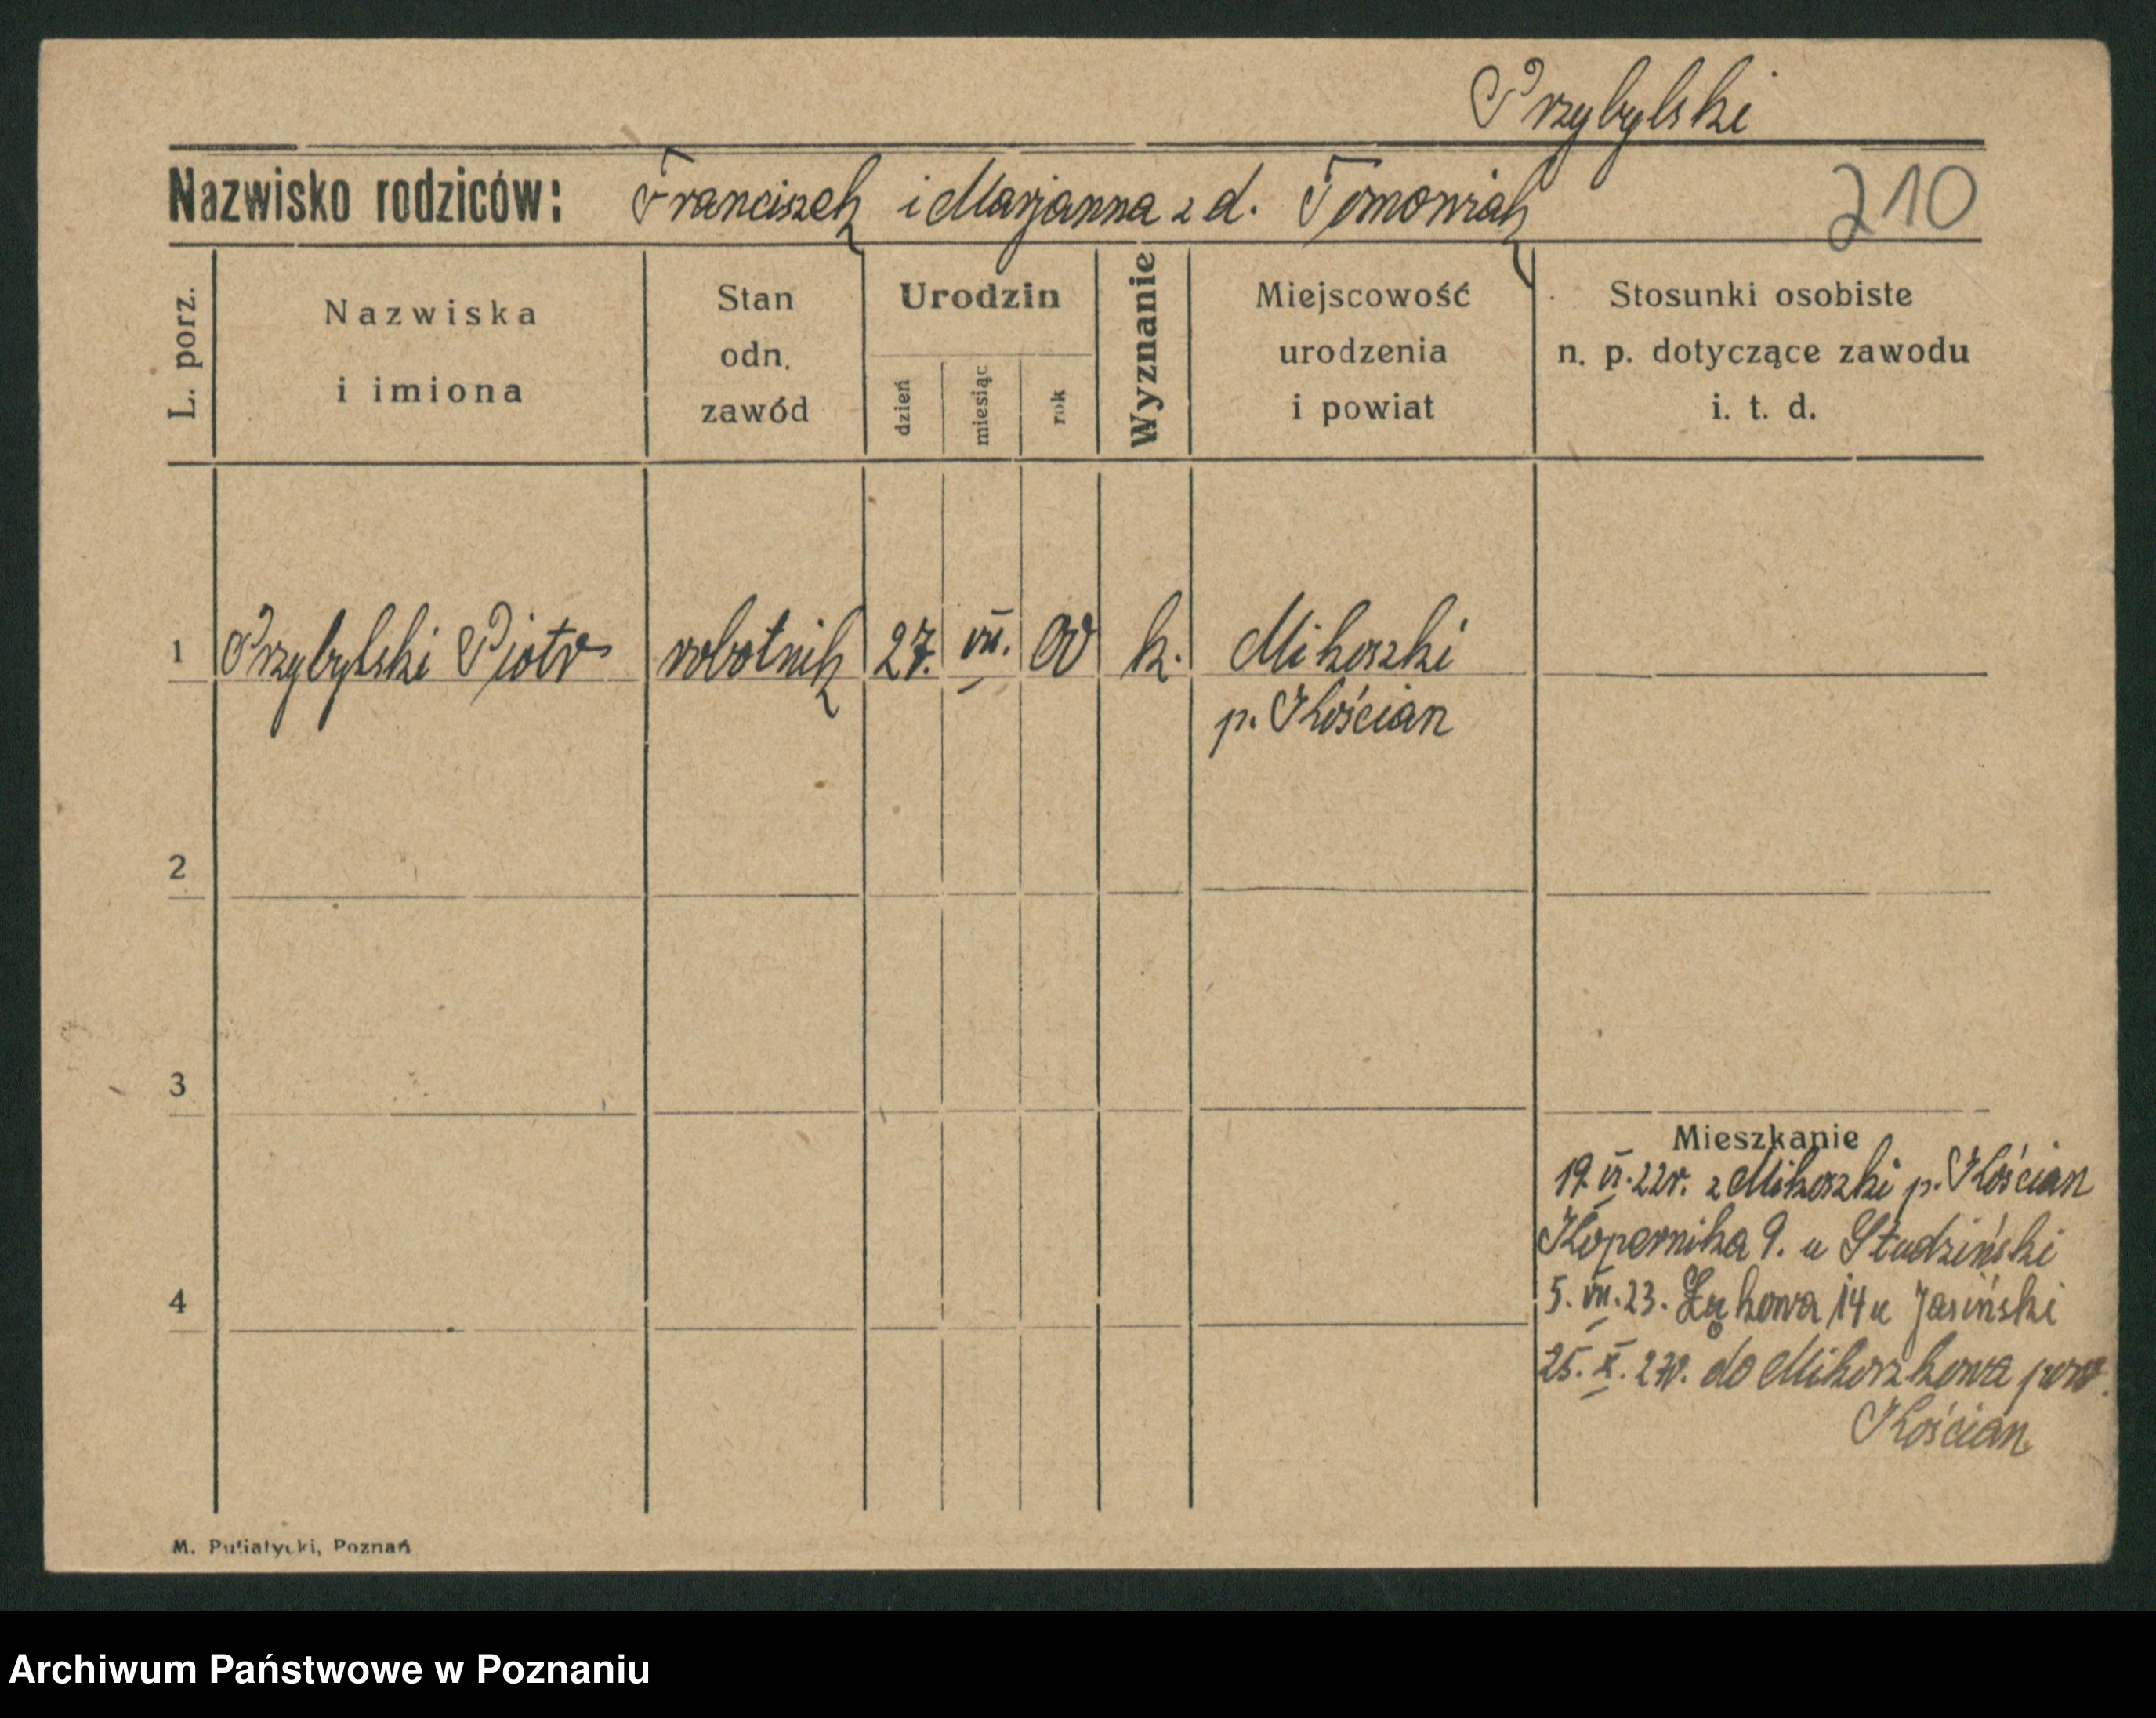 Przybylski
Nazwisko rodziców: Franciszek i Marjanna z d. Tomowiak
210
L. porz.
Nazwiska
i imiona
Stan
odn.
zawód
Urodzin
dzień
miesiąc
rok
Wyznanie
Miejscowość
urodzenia
i powiat
Stosunki osobiste
n. p. dotyczące zawodu
i. t. d.
1 Przybylski Piotr robotnik 27. VII. 00 k. Mikoszki
p. Kościan
2
3
Mieszkanie
19. VI. 22r. z Mikoszki p. Kościan
Kopernika 9. u Studziński
5. VII. 23. Łąkowa 14 u Jasiński
4
25. X. do Mikoszkowa pow.
Kościan
M. Putiatycki, Poznań
Archiwum Państwowe w Poznaniu